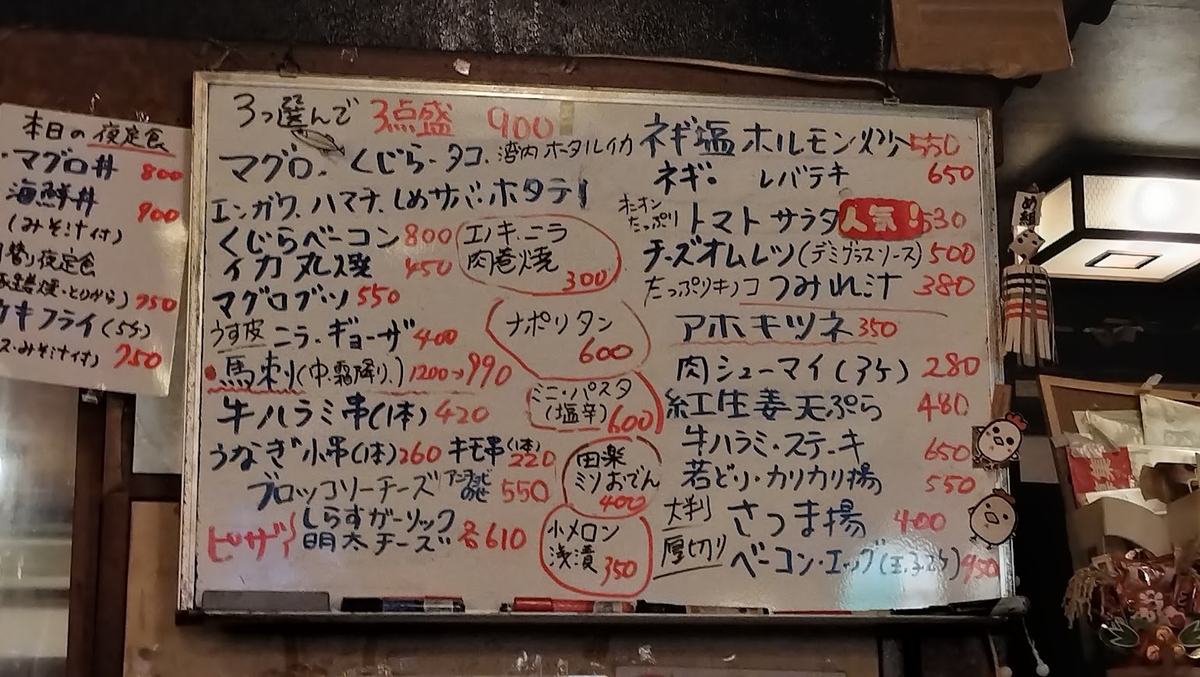 本日の夜定食
・マグロ丼 800
海鮮丼 900
(みそ汁付)
替り夜定食
焼・とりから) 750
キフライ(5ケ)
ス・みそ汁付) 750
3つ選んで 3点盛 900
マグロ、くじら・タコ、湾内ホタルイカ
エンガワ、ハマチ、しめサバ・ホタテ
くじらベーコン 800
イカ丸焼 450
マグロブツ 550
うす皮 ニラ・ギョーザ 400
馬刺(中、霜降り、) 1200→990
牛ハラミ串(1本) 420
うなぎ小串(1本) 260 キモ串(1本) 220
ブロッコリーチーズ アンチョビのせ 550
ピザ しらすガーリック
明太チーズ 各610
エノキ・ニラ
肉巻焼
300
ナポリタン
600
ミニ・パスタ
(塩辛) 600
田楽
ミソおでん
400
小メロン
浅漬 350
ネギ塩ホルモン炒 550
ネギ・レバテキ 650
オニオンたっぷり トマトサラダ 人気! 530
チーズオムレツ(デミグラスソース) 500
たっぷりキノコ つみれ汁 380
アホキツネ 350
肉シューマイ(3ケ) 280
紅生姜天ぷら 480
牛ハラミ・ステーキ 650
若どり・カリカリ揚 550
大判 さつま揚 400
厚切り ベーコン・エッグ(玉子2ケ) 450
め組